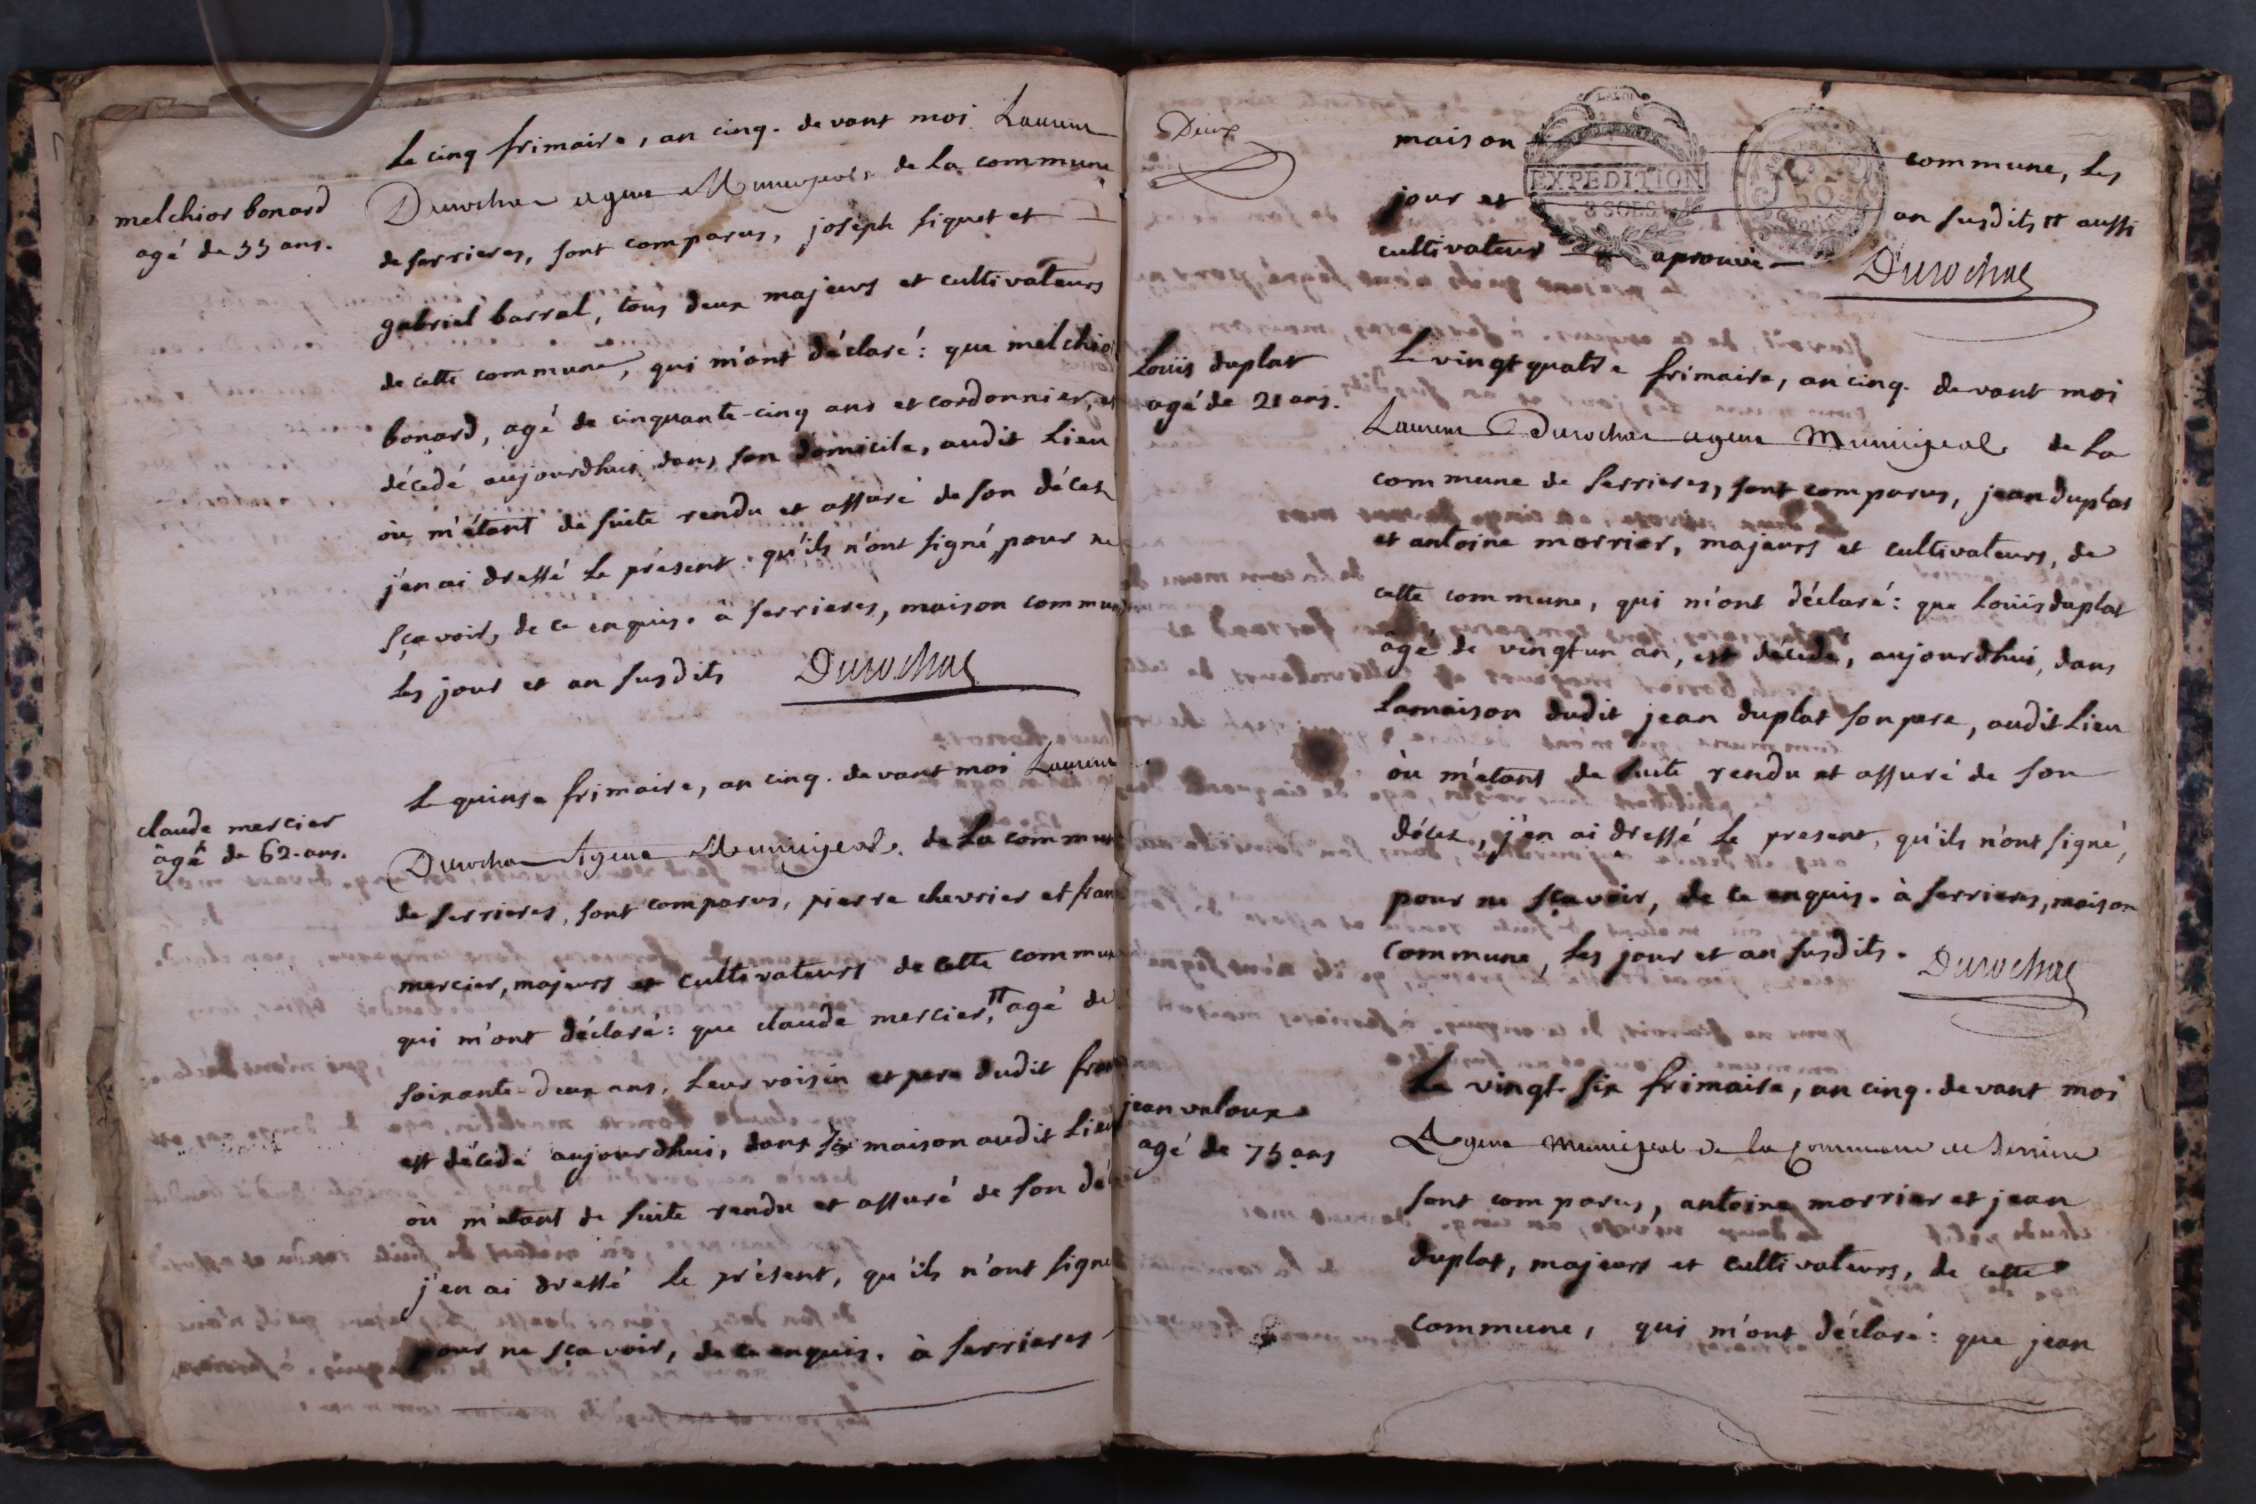 melchior bonard
agé de 55 ans.
Le cinq frimaire, an cinq. devant moi Laurent
Durochat agent Municipal de la commune
de serrieres, sont comparus, joseph siquet et
gabriel barral, tous deux majeurs et cultivateurs
de cette commune, qui m'ont déclaré: que melchio
bonard, agé de cinquante-cinq ans et cordonnier, est
décédé aujourdhui dans son domicile, audit Lieu
où m'étant de suite rendu et assuré de son décez
j'en ai dressé Le présent. qu'ils n'ont signé pour ne
sçavoir, de ce enquis. à serrieres, maison commun
les jour et an susdits Durochat
claude mercier
âgé de 62. ans.
Le quinze frimaire, an cinq. devant moi Laurent
Durochat Agent Municipal. de La commun
de serrieres, sont comparus, pierre chevrier et fran
mercier, majeurs et cultivateurs de cette commun
qui m'ont déclaré: que claude mercier, agé de
soixante-deux ans, Leur voisin et pere dudit fran
est décédé aujourdhui, dans sa maison audit Lieu
où m'étant de suite rendu et assuré de son déc
j'en ai dressé Le présent, qu'ils n'ont signé
pour ne sçavoir, de ce enquis. à serrieres
Deux
maison commune, les
jour et an susdits aussi
cultivateur aprouvé Durochat
LA LOI
EXPEDITION
8 SOLS
Louis duplat
agé de 21 ans.
Le vingt quatre frimaire, an cinq. devant moi
Laurent Durochat agent Municipal de la
commune de serrieres, sont comparus, jean duplat
et antoine morrier, majeurs et cultivateurs, de
cette commune, qui m'ont déclaré: que Louis duplat
agé de vingt un an, est décédé, aujourdhui, dans
Lamaison dudit jean duplat son pere, audit Lieu
où m'etant de suite rendu et assuré de son
décez, j'en ai dressé Le present, qu'ils n'ont signé,
pour ne sçavoir, de ce enquis. à serrieres, maison
commune, les jour et an susdits. Durochat
jean valoux
agé de 75 ans
Le vingt-six frimaire, an cinq. devant moi
Agent Municipal de la Commune de Serriere
sont comparus, antoine morrier et jean
duplat, majeurs et cultivateurs, de cette
commune, qui m'ont déclaré: que jean